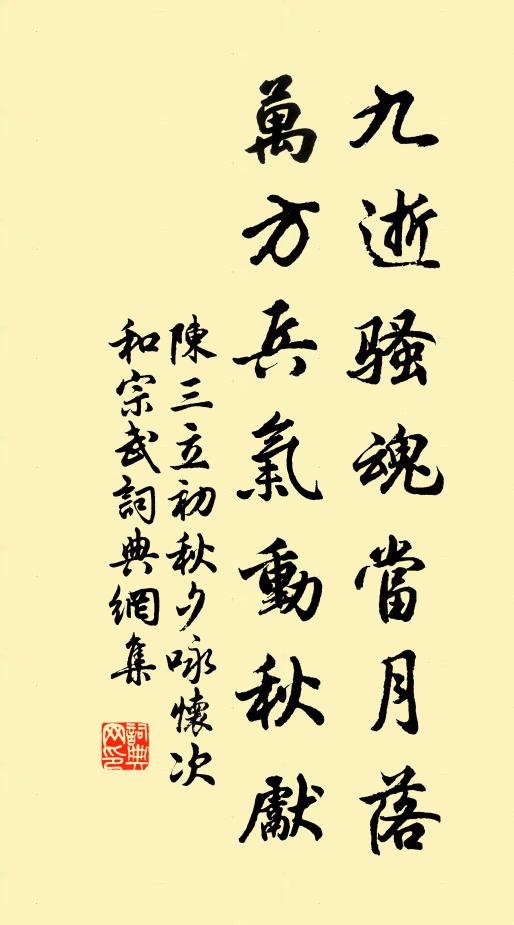 九逝骚魂當月落
萬方兵氣動秋獻
陳三立初秋夕咏懷次
和宗武詞典網集
詞典网印